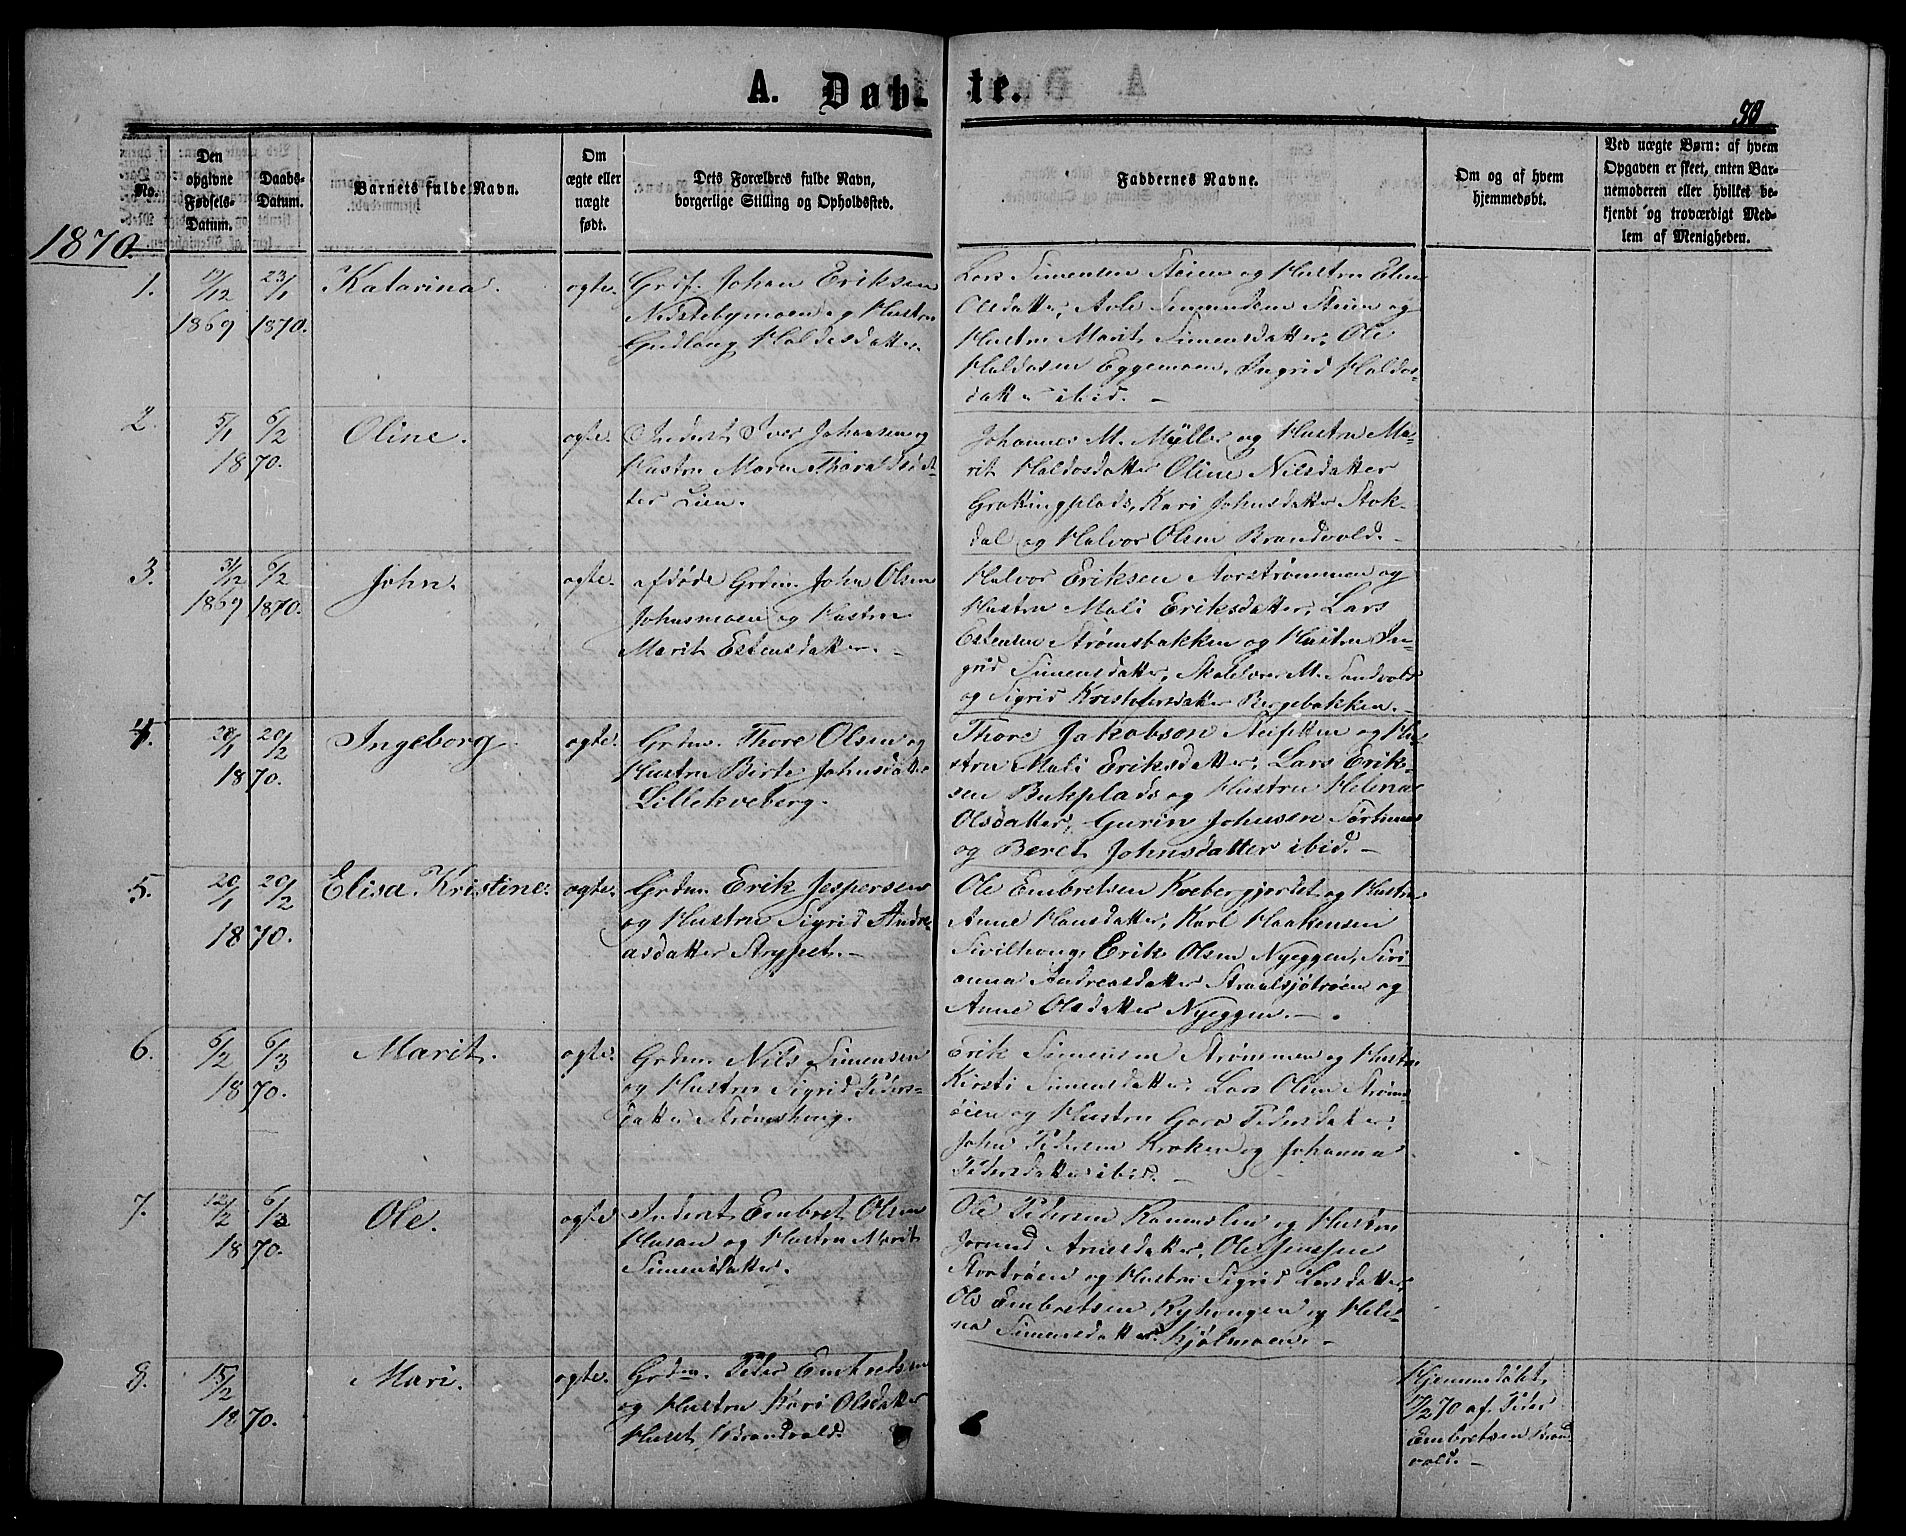 A. Døb-
te.
No.
Den
opgivne
Fødsels-
Datum.
Daabs-
Datum.
Barnets fulde Navn.
Om
ægte eller
uægte
født.
Dets Forældres fulde Navn,
borgerlige Stilling og Opholdssted.
Faddernes Navne.
Om og af hvem
hjemmedøbt.
Ved uægte Børn: af hvem
Opgaven er skeet, enten Bar-
nemoderen eller hvilket be-
kjendt og troværdigt Med-
lem af Menigheden.
1870.
1.
1869
23/1
1870.
Katarina.
ægte.
Grdf. Johan Eriksen
Nedstebymoen og Hustru
Gudlaug Haldosdatter.
Lars Simensen Steien og Hustru Eline
Olsdatter, Simensen Steien og
Hustru Marit Simensdatter, Ole
Haldosen Eggemoen, Ingrid Haldos-
datter ibid. -
2.
5/1
6/2
1870.
Oline.
ægte.
Inderst Iver Johansen og
Hustru Maren Thoraldsdat-
ter Lien.
Johannes M. Myller og Hustru Ma-
rit Haldosdatter, Oline Nilsdatter
Grøttingplads, Kari Johnsdatter Stok-
dal og Halvor Olsen Brandvold. -
3.
31/12
1869
6/2
1870.
John.
ægte.
afdøde Grdm. John Olsen
Johnsmoen og Hustru
Marit Estensdatter. -
Halvor Eriksen Aorstrømmen og
Hustru Mali Eriksdatter, Lars
Estensen Strømsbakken og Hustru In-
grid Simensdatter, Skolelærer M. Sandvold
og Sigrid Bergebakken. -
4.
28/1
20/2
1870.
Ingeborg.
ægte.
Grdm. Thore Olsen og
Hustru Birte Johnsdatter
Lillekveberg.
Thore Jakobson og Hu-
stru Mali Eriksdatter, Lars Erik-
sen Bukplads og Hustru Helena
Olsdatter, Gurin Johnsen
og Beret Johnsdatter ibid. -
5.
20/1
20/2
1870.
Elisa Kristine.
ægte.
Grdm. Erik Jespersen
og Hustru Sigrid Andre-
asdatter Stryppet. -
Ole Embretsen Kvebergjordet og Hustru
Anne Hansdatter, Karl Haakensen
Sivilhoug, Erik Olsen Nyeggen, Siri-
anna Andreasdatter Straalsjøtrøen og
Anne Olsdatter Nyeggen. -
6.
6/2
6/3
1870.
Marit.
ægte.
Grdm. Nils Simensen
og Hustru Sigrid Peders-
datter Strømshoug.
Erik Simensen Strømmen og Hustru
Kirsti Simensdatter, Lars Olsen Strøms-
øien og Hustru Goro Pedersdatter,
John Pedersen Kroken og Johanna
Pedersdatter ibid. -
7.
12/2
6/3
1870.
Ole.
ægte
Inderst Embret Olsen
Husan og Hustru Marit
Simensdatter.
Ole Pedersen Ramuslien og Hustru
Jorund Arnesdatter, Ole Jenssen
Stortrøen og Hustru Sigrid Larsdatter,
Ole Embretsen Ryhougen og Hele-
na Simensdatter Kjølmoen. -
8.
15/2
1870.
Mari.
ægte.
Grdm. Peder Embretsen
og Hustru Kari Olsdatter
Huset, Brandvold.
Hjemmedøbt
17/2 70 af Peder
Embretsen Brand-
vold. -